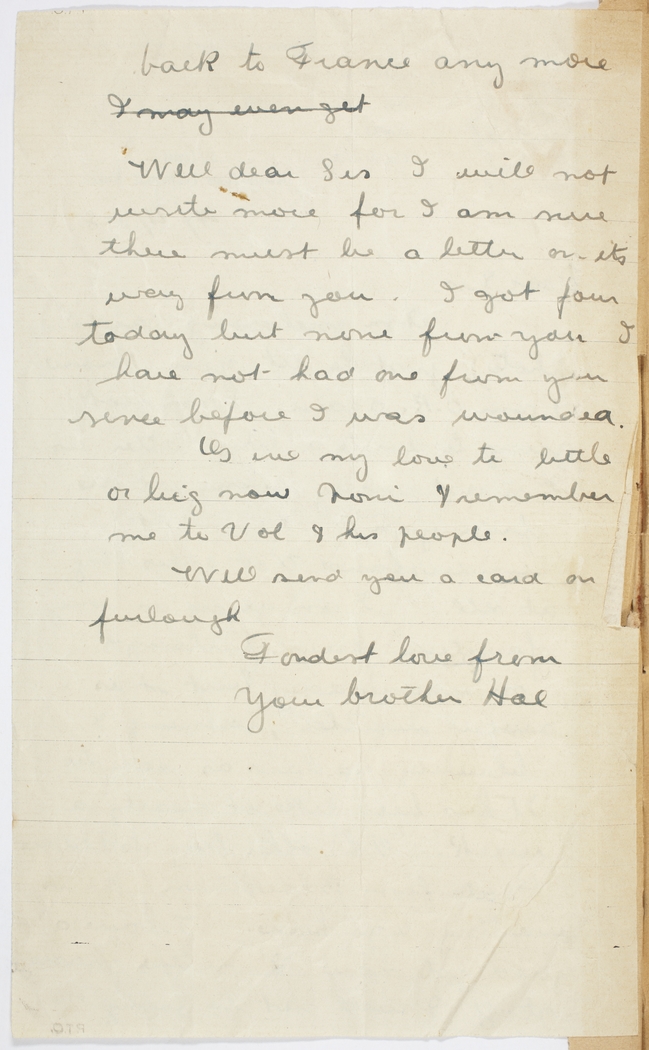 back to France any more
I may even get
Well dear Sis I will not
write more for I am sure
there must be a letter on its
way from you. I got four
today but none from you I
have not had one from you
since before I was wounded.
Give my love to little
or big now Noni & remember
me to Vol & his people.
Will send you a card on
furlough
Fondest love from
Your brother Hal